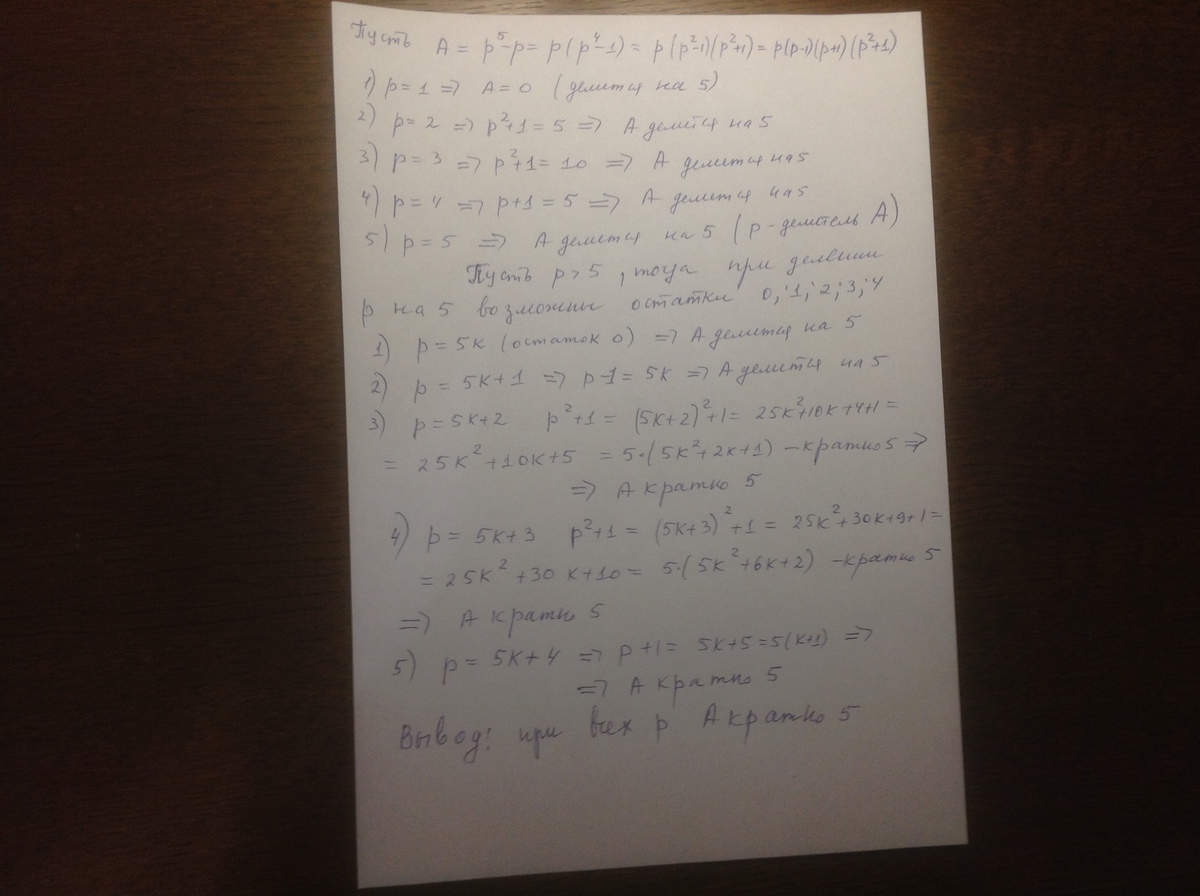 Пусть A = p⁵-p = p(p⁴-1) = p(p²-1)(p²+1) = p(p-1)(p+1)(p²+1)
1) p=1 => A=0 (делится на 5)
2) p=2 => p²+1=5 => A делится на 5
3) p=3 => p²+1=10 => A делится на 5
4) p=4 => p+1=5 => A делится на 5
5) p=5 => A делится на 5 (p-делитель A)
Пусть p>5, тогда при делении
p на 5 возможны остатки 0; 1; 2; 3; 4
1) p=5k (остаток 0) => A делится на 5
2) p=5k+1 => p-1=5k => A делится на 5
3) p=5k+2 p²+1 = (5k+2)²+1 = 25k²+10k+4+1 =
= 25k²+10k+5 = 5·(5k²+2k+1) - кратно 5 =>
=> A кратно 5
4) p=5k+3 p²+1 = (5k+3)²+1 = 25k²+30k+9+1 =
= 25k²+30k+10 = 5·(5k²+6k+2) - кратно 5
=> A кратно 5
5) p=5k+4 => p+1= 5k+5=5(k+1) =>
=> A кратно 5
Вывод: при всех p A кратно 5